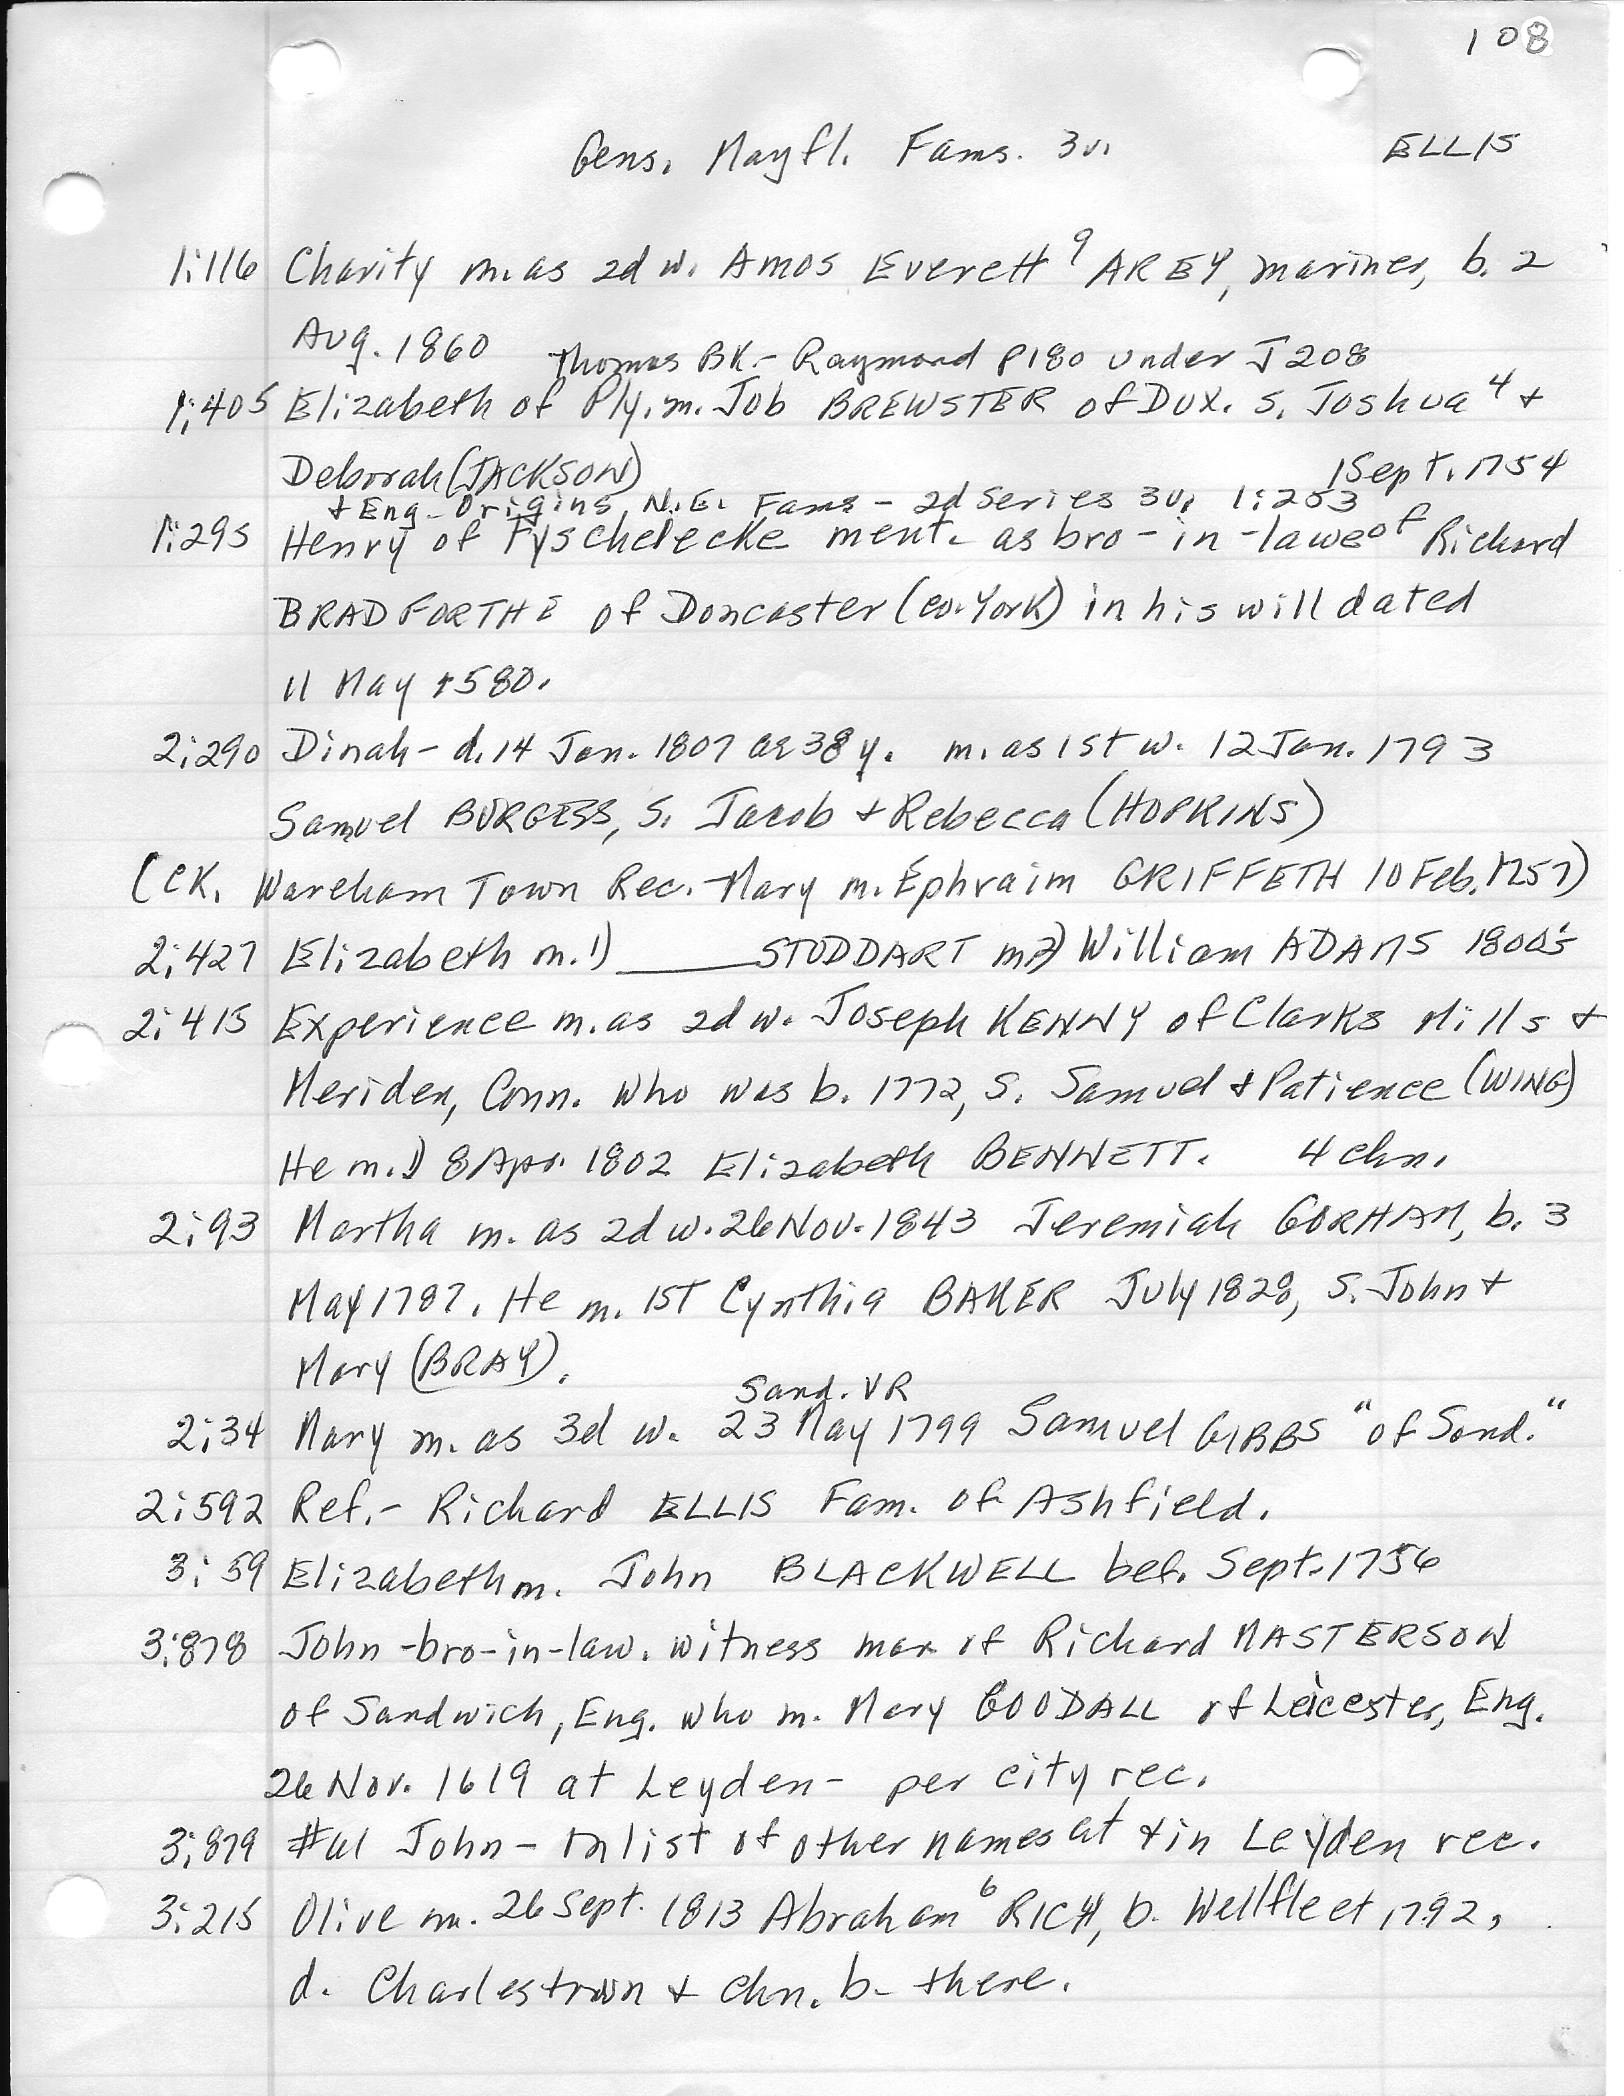 108
Gens. Mayfl. Fams. 3v. ELLIS
1:116 Charity m. as 2d w. Amos Everett⁹ AREY, mariner, b. 2
Aug. 1860 Thomas BK.- Raymond P180 under J208
1:405 Elizabeth of Ply. m. Job BREWSTER of Dux. s. Joshua⁴ +
Deborah (JACKSON) 1 Sept. 1754
+ Eng. Origins N.E. Fams - 2d Series 3v. 1:253
1:295 Henry of Tyschelecke ment. as bro-in-lawe of Richard
BRADFORTHE of Doncaster (co. York) in his will dated
11 May 1580.
2:290 Dinah - d. 14 Jan. 1807 ae 38 y. m. as 1st w. 12 Jan. 1793
Samuel BURGESS, s. Jacob + Rebecca (HOPKINS)
(CK. Wareham Town Rec. - Mary m. Ephraim GRIFFETH 10 Feb. 1757)
2:427 Elizabeth m. 1) ______ STODDART m 2) William ADAMS 1800's
2:415 Experience m. as 2d w. Joseph KENNY of Clarks Mills +
Meriden, Conn. who was b. 1772, s. Samuel + Patience (WING)
He m. 1) 8 Apr. 1802 Elizabeth BENNETT. 4 chn.
2:93 Martha m. as 2d w. 26 Nov. 1843 Jeremiah GORHAM, b. 3
May 1787. He m. 1ST Cynthia BAKER July 1828, s. John +
Mary (BRAY).
Sand. VR
2:34 Mary m. as 3d w. 23 May 1799 Samuel GIBBS "of Sand."
2:592 Ref. - Richard ELLIS Fam. of Ashfield.
3:59 Elizabeth m. John BLACKWELL bef. Sept. 1756
3:878 John - bro-in-law. witness mar of Richard MASTERSON
of Sandwich, Eng. who m. Mary GOODALL of Leicester, Eng.
26 Nov. 1619 at Leyden - per city rec.
3:879 John - In list of other names at + in Leyden rec.
3:215 Olive m. 26 Sept. 1813 Abraham⁶ RICH, b. Wellfleet 1792,
d. Charlestown + chn. b. there.